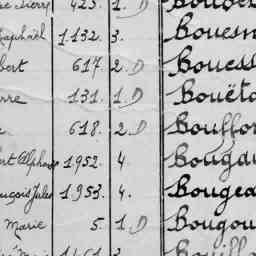 425. 1. D
Raphaël 1132. 3. Bouesn
bert 617. 2. D Bouess
rre 131. 1. D Bouëto
618. 2. D Bouffor
rt Alphons 1952. 4. Bougau
ançois Jules 1953. 4. Bougea
Marie 5. 1. D Bougou